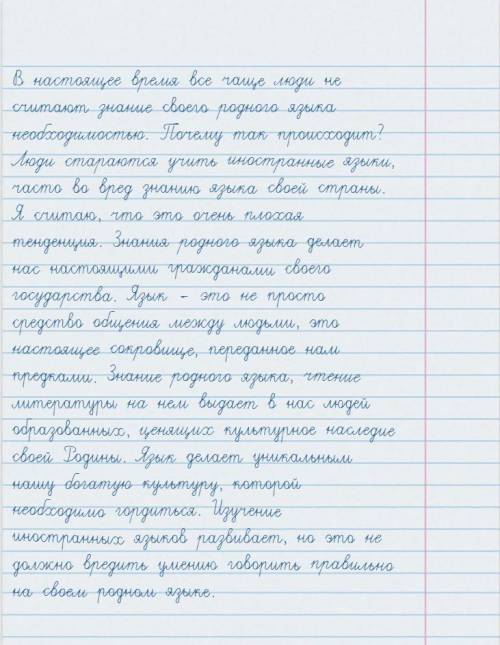 В настоящее время все чаще люди не
считают знание своего родного языка
необходимостью. Почему так происходит?
Люди стараются учить иностранные языки,
часто во вред знанию языка своей страны.
Я считаю, что это очень плохая
тенденция. Знания родного языка делает
нас настоящими гражданами своего
государства. Язык - это не просто
средство общения между людьми, это
настоящее сокровище, переданное нам
предками. Знание родного языка, чтение
литературы на нем выдает в нас людей
образованных, ценящих культурное наследие
своей Родины. Язык делает уникальным
нашу богатую культуру, которой
необходимо гордиться. Изучение
иностранных языков развивает, но это не
должно вредить умению говорить правильно
на своем родном языке.